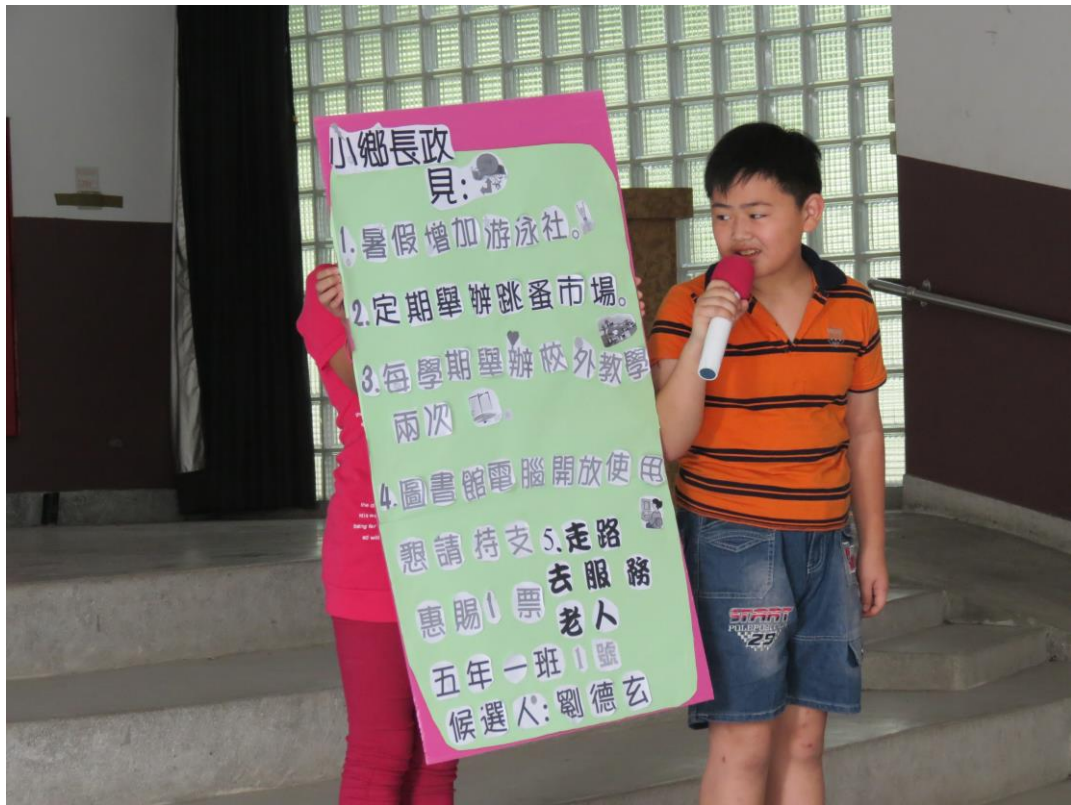 小鄉長政
見:
1.暑假增加游泳社。
2.定期舉辦跳蚤市場。
3.每學期舉辦校外教學
兩次。
4.圖書館電腦開放使用
懇請持支
惠賜1票
5.走路
去服務
老人
五年一班1號
候選人:劉德玄
START
POLEPOSITION
29